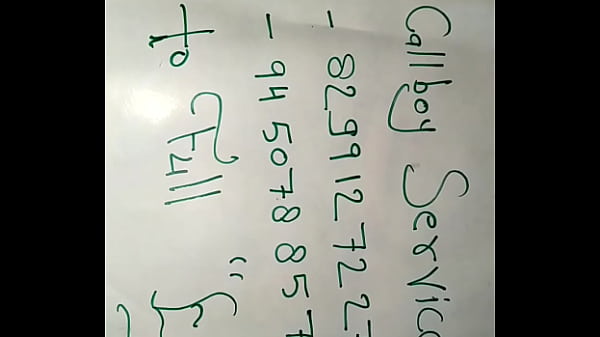 Call boy Service
- 8299127227
- 945078857
to Full "